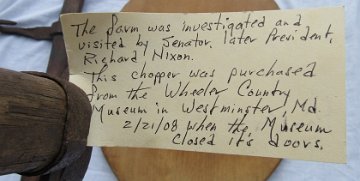 The farm was investigated and
visited by Senator, later President,
Richard Nixon.
This chopper was purchased
from the Wheeler Country
Museum in Westminster, Md.
2/21/08 when the Museum
closed it's doors.